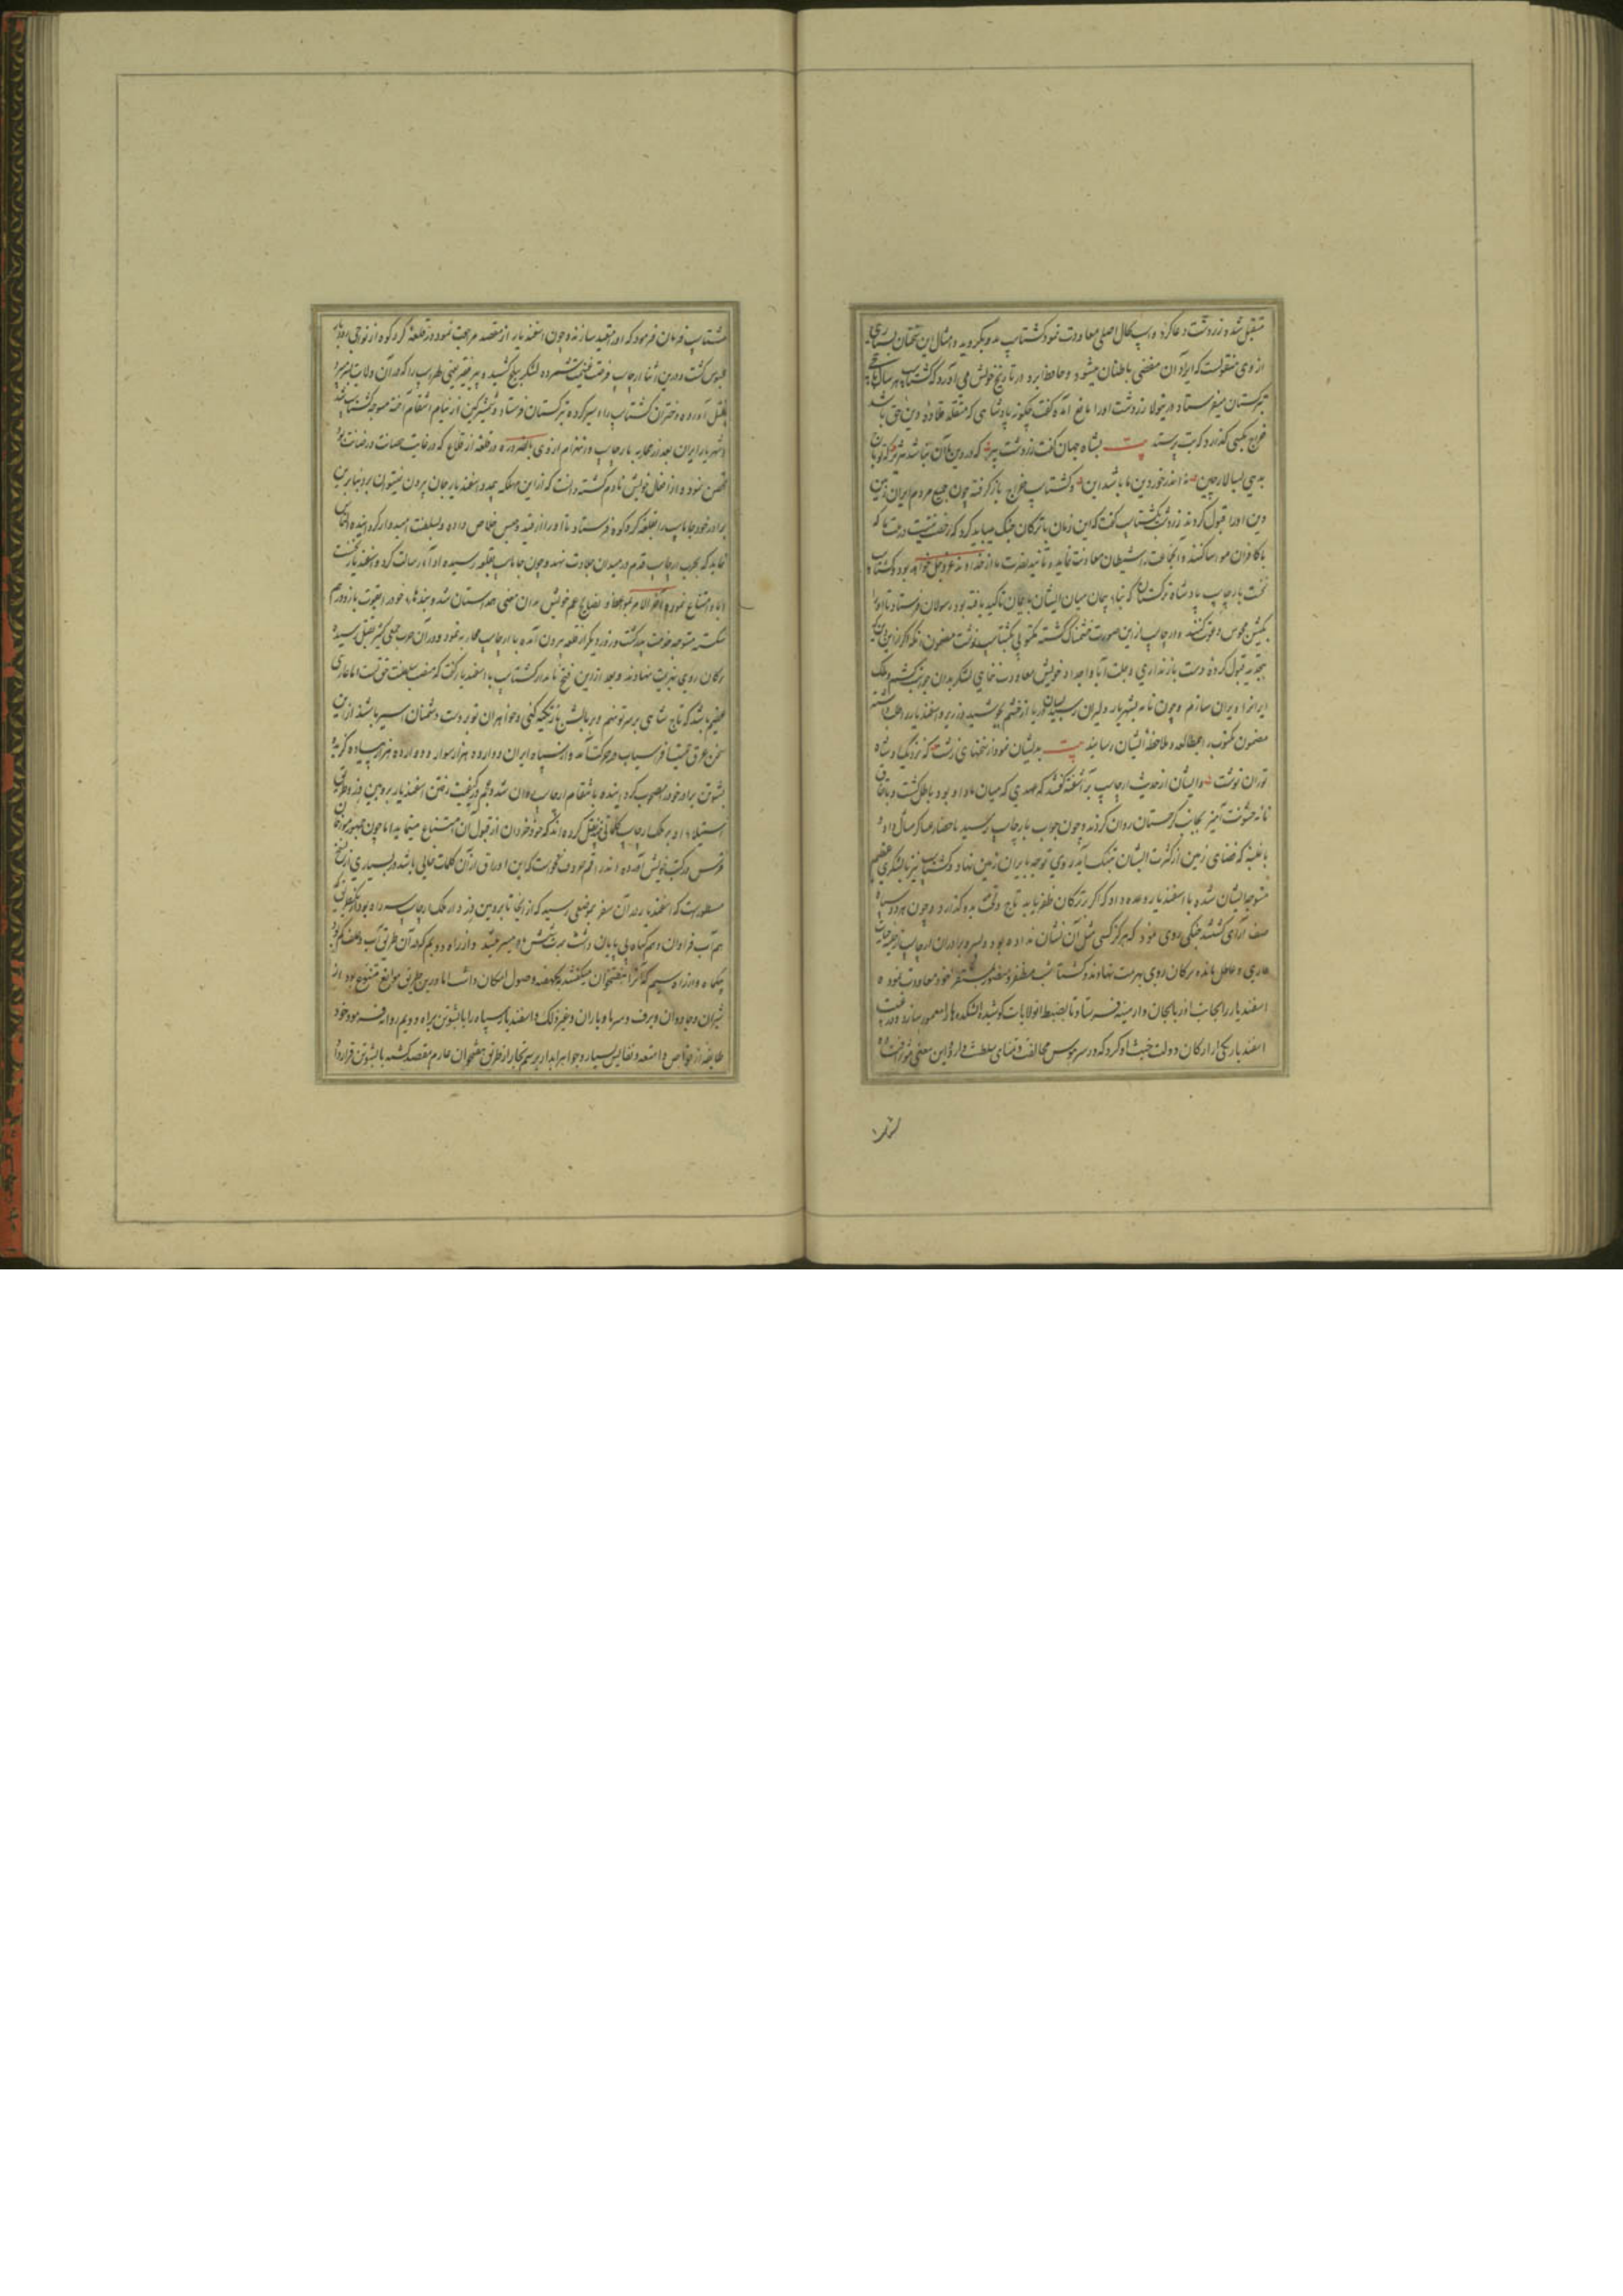 متقبل شده زردشت دعا کرد و اسپ بحال اصلی معاودت نمود گشتاسپ بدو بگروید و امثال این سخنان بسیاری
از وی منقولست که ایراد آن مفضی باطناب میشود و حافظ ابرو در تاریخ خویش می آورد که گشتاسپ هر سال باج
بترکستان میفرستاد و رسولان زردشت او را مانع آمده گفت چگونه پادشاهی که متقلد قلاده دین حق باشد
خراج بکسی گذارد که بت پرستد بیت بشاه جهان گفت زردشت پیر که در دین ما آن نباشد هژیر که تو باج
بدهی بسالار چین نه اندر خور دین ما باشد این و گشتاسپ خراج باز گرفته چون جمیع مردم ایران زمین
دین او را قبول کردند زردشت بگشتاسپ گفت که این زمان با ترکان جنگ میباید کرد که رخصت نیست در ملت ما که
با کافران مواسا کنند و آنجماعت را شیطان معاونت نماید و تأیید و نصرت ما از خداوند عز و جل خواهد بود و گشتاسپ
نخست بارجاسپ پادشاه ترکستان که بنای پیمان میان ایشان بایمان تاکید یافته بود رسولان فرستاد تا او را
بکیش مجوس دعوت کنند و ارجاسپ ازین صورت خشمناک گشته مکتوبی بگشتاسپ نوشت مضمون آنکه اگر از این دین که
بتجدید قبول کرده دست باز نداری و بملت آبا و اجداد خویش معاودت ننمای لشکر بدان حدود کشم و ملک
ایران را ویران سازم و چون نامه بشهریار دلیران رسید بسان دریا از خشم بجوشید و زریر و اسفندیار را طلب داشته
مضمون مکتوب را بمطالعه و ملاحظه ایشان رسانید بیت بدیشان نمود از سخنهای زشت که نزدیک او شاه
توران نوشت و ایشان از حدیث ارجاسپ برآشفته گفتند که عهدی که میان ما و او بود باطل گشت و باتفاق
نامه خشونت آمیز بجانب ترکستان روان کردند و چون جواب بارجاسپ رسید باحضار عساکر مثال داد و
با غلبه که فضای زمین از کثرت ایشان بتنگ آید روی توجه بایران زمین نهاد و گشتاسپ نیز با لشکری عظیم
متوجه ایشان شده با اسفندیار وعده داد که اگر بر ترکان ظفر یابد تاج و تخت بدو گذارد و چون هر دو سپاه
صف آرای گشتند جنگی روی نمود که هرگز کسی مثل آن نشان نداده بود و پسر و برادران ارجاسپ از حلیه حیات
عاری و عاطل مانده ترکان روی بهزیمت نهادند و گشتاسپ مظفر و منصور بمستقر خود معاودت نموده
اسفندیار را بجانب آذربایجان و ارمنیه فرستاد تا بضبط آن ولایات کوشیده آتشکده ها را معمور سازد و در غیبت
اسفندیار یکی از ارکان دولت خبث او کرد که در سر هوس مخالفت و تمنای سلطنت دارد و این معنی موافق
گشتاسپ فرمان فرمود که او را مقید سازند و چون اسفندیار از مقصد مراجعت نمود در قلعه گردکوه از نواحی رودبار
محبوس گشت و درین اثنا ارجاسپ فرصت غنیمت شمرده لشکر ببلخ کشید و پیر فقیر یعنی لهراسپ را که در آن ولایت بسر میبرد
بقتل آورده و دختران گشتاسپ را اسیر کرده بترکستان فرستاد و شمشیر کین از نیام انتقام آخته متوجه گشتاسپ شد
و شهریار ایران بعد از محاربه با ارجاسپ و انهزام از وی بالضروره در قلعه از قلاع که در غایت حصانت و رصانت بود
تحصن نمود و از افعال خویش نادم گشته دانست که از این مهلکه بمدد اسفندیار جان بیرون میتوان برد بنابرین
برادر خود جاماسپ را بقلعه گردکوه فرستاد تا او را از قید و حبس خلاص داده و بسلطنت امیدوار گردانیده التماس
نماید که بحرب ارجاسپ قدم در میدان جلادت نهد و چون جاماسپ بقلعه رسیده ادای رسالت کرد اسفندیار نخست
ابا و امتناع نمود و آخر الامر بمواعظ و نصایح عم خویش بدان معنی همداستان شد و بندهای خود را بقوت بازو درهم
شکسته متوجه خدمت پدر گشت و روز دیگر از قلعه بیرون آمده با ارجاسپ محاربه نمود و در آن حرب جمعی کثیر بقتل رسیده
ترکان روی بهزیمت نهادند و بعد از این فتح نامدار گشتاسپ با اسفندیار گفت که منصب سلطنت حق تست اما عاری
عظیم باشد که تاج شاهی بر سر تو نهم و بر بالش ناز تکیه کنی و خواهران تو بر دست دشمنان اسیر باشند از این
سخن عرق حمیت اسفندیار در حرکت آمد و از سپاه ایران دوازده هزار سوار و دوازده هزار پیاده گزیده
بشوتن برادر خود را مصحوب گردانیده بانتقام ارجاسپ روان شد و عجم در کیفیت رفتن اسفندیار بروئین دز و طریق
استیلاء او بر ملک ارجاسپ کلماتی چند نقل کرده اند که خرد خرده دان از قبول آن امتناع مینماید اما چون جمهور مورخان
فرس در کتب خویش آورده اند
مسطور است که اسفندیار در آن سفر بموضعی رسید که از آنجا تا بروئین دز دار ملک ارجاسپ سه راه بود از یکطریق که
هم آب فراوان و هم گیاه بی پایان داشت بمدت شش ماه میسر میشد و از راه دویم که در آن طریق آب و علف کم بود
بیکماه و از راه سیم که آنرا هفتخوان میگفتند بیکهفته وصول امکان داشت اما درین طریق موانع متنوع بود از
شیران و جادوان و برف و سرما و باران و غیر ذلک و اسفندیار سپاه را با بشوتن براه دویم روانه فرمود و خود با
طایفه از خواص و امتعه و نفایس بسیار و جواهر آبدار برسم تجار از طریق هفتخوان عازم مقصد گشته با بشوتن قرار داد